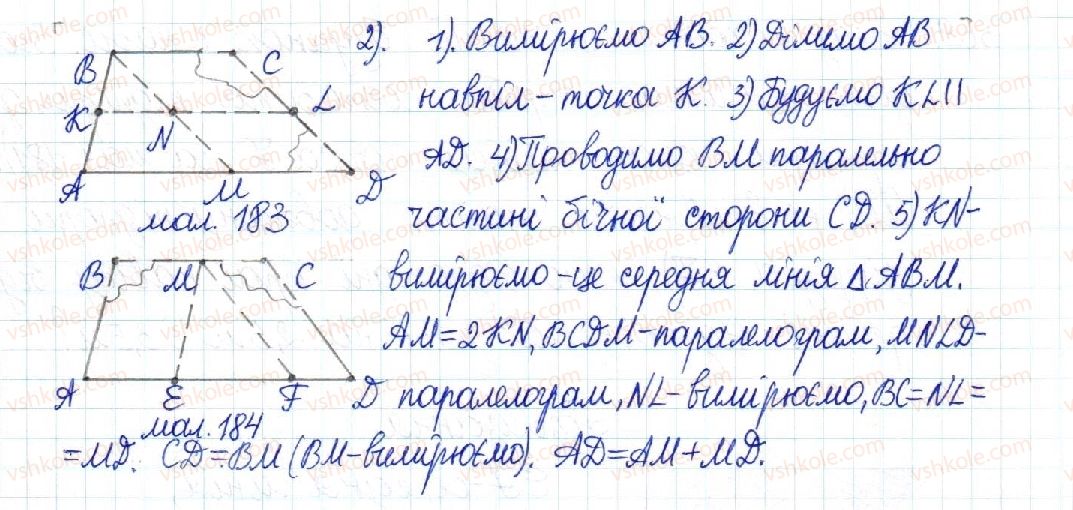 2). 1). Вимірюємо AB. 2) Ділимо AB
навпіл – точка K. 3) Будуємо KL ||
AD. 4) Проводимо BM паралельно
частині бічної сторони CD. 5) KN –
вимірюємо – це середня лінія Δ ABM.
AM = 2KN, BCDM – паралелограм, MNLD –
паралелограм, NL – вимірюємо, BC = NL =
= MD. CD = BM (BM – вимірюємо). AD = AM + MD.
B C
K N L
A M D
мал. 183
B M C
A E F D
мал. 184
vshkole.com